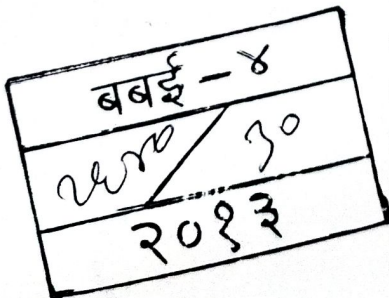 बबई - ४
/ ३०
२०१३